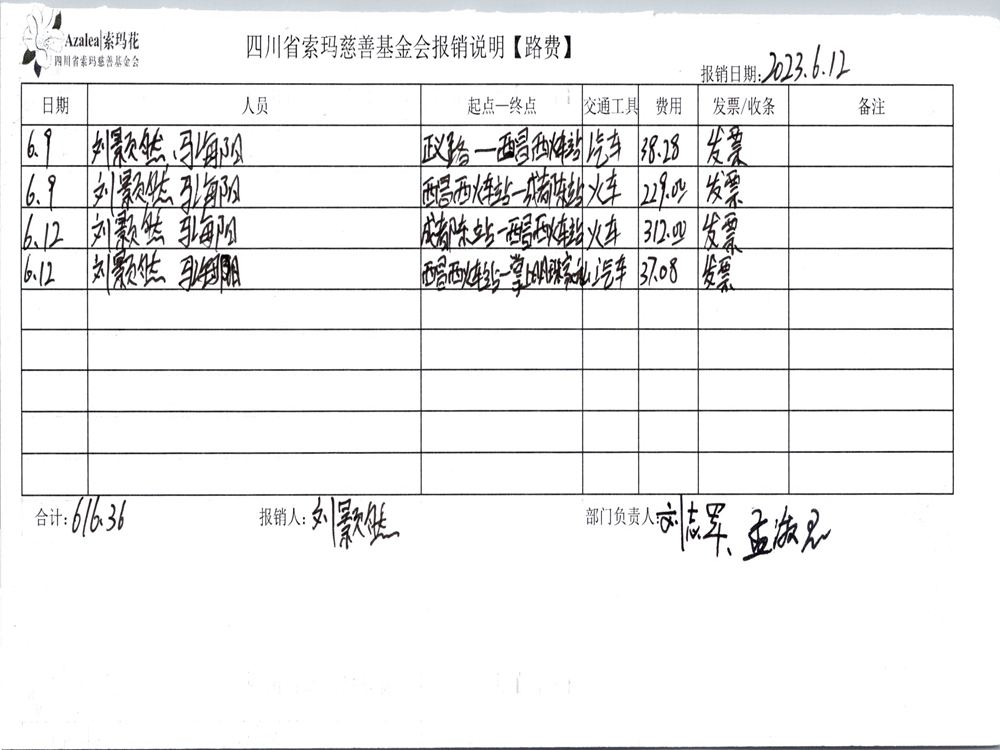 Azalea|索玛花
四川省索玛慈善基金会
四川省索玛慈善基金会报销说明【路费】
报销日期:2023.6.12
日期 人员 起点—终点 交通工具 费用 发票/收条 备注
6.9 刘颢然、马海阳 政义路—西昌西火车站 汽车 38.28 发票
6.9 刘颢然 马海阳 西昌西火车站—成都东站 火车 229.00 发票
6.12 刘颢然 马海阳 成都东站—西昌西火车站 火车 312.00 发票
6.12 刘颢然 马海阳 西昌西火车站—掌上明珠家 汽车 37.08 发票
合计:616.36 报销人:刘颢然 部门负责人:刘志军、孟